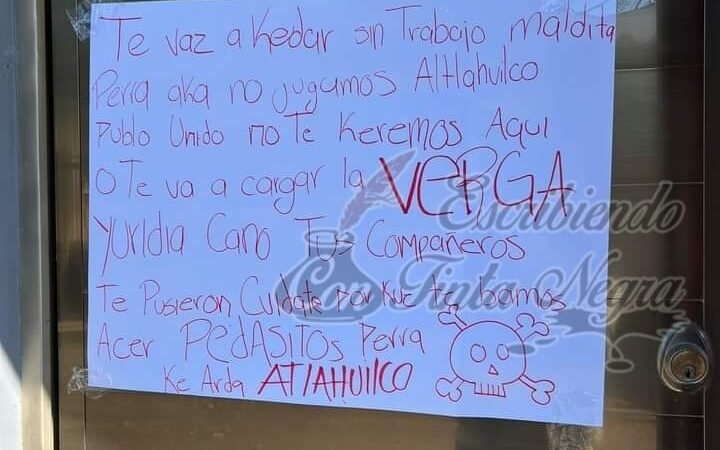 Te vaz a Kedar sin Trabajo maldita
Perra aka no jugamos Altlahuilco
publo Unido no Te Keremos Aqui
o Te va a cargar la VERGA
Yuridia Cano Tus Compañeros
Te Pusieron Cuidate por Kue te bamos
Acer PEdASitos Perra
Ke Arda ATlAHuilco
Escribiendo
Con Tinta Negra